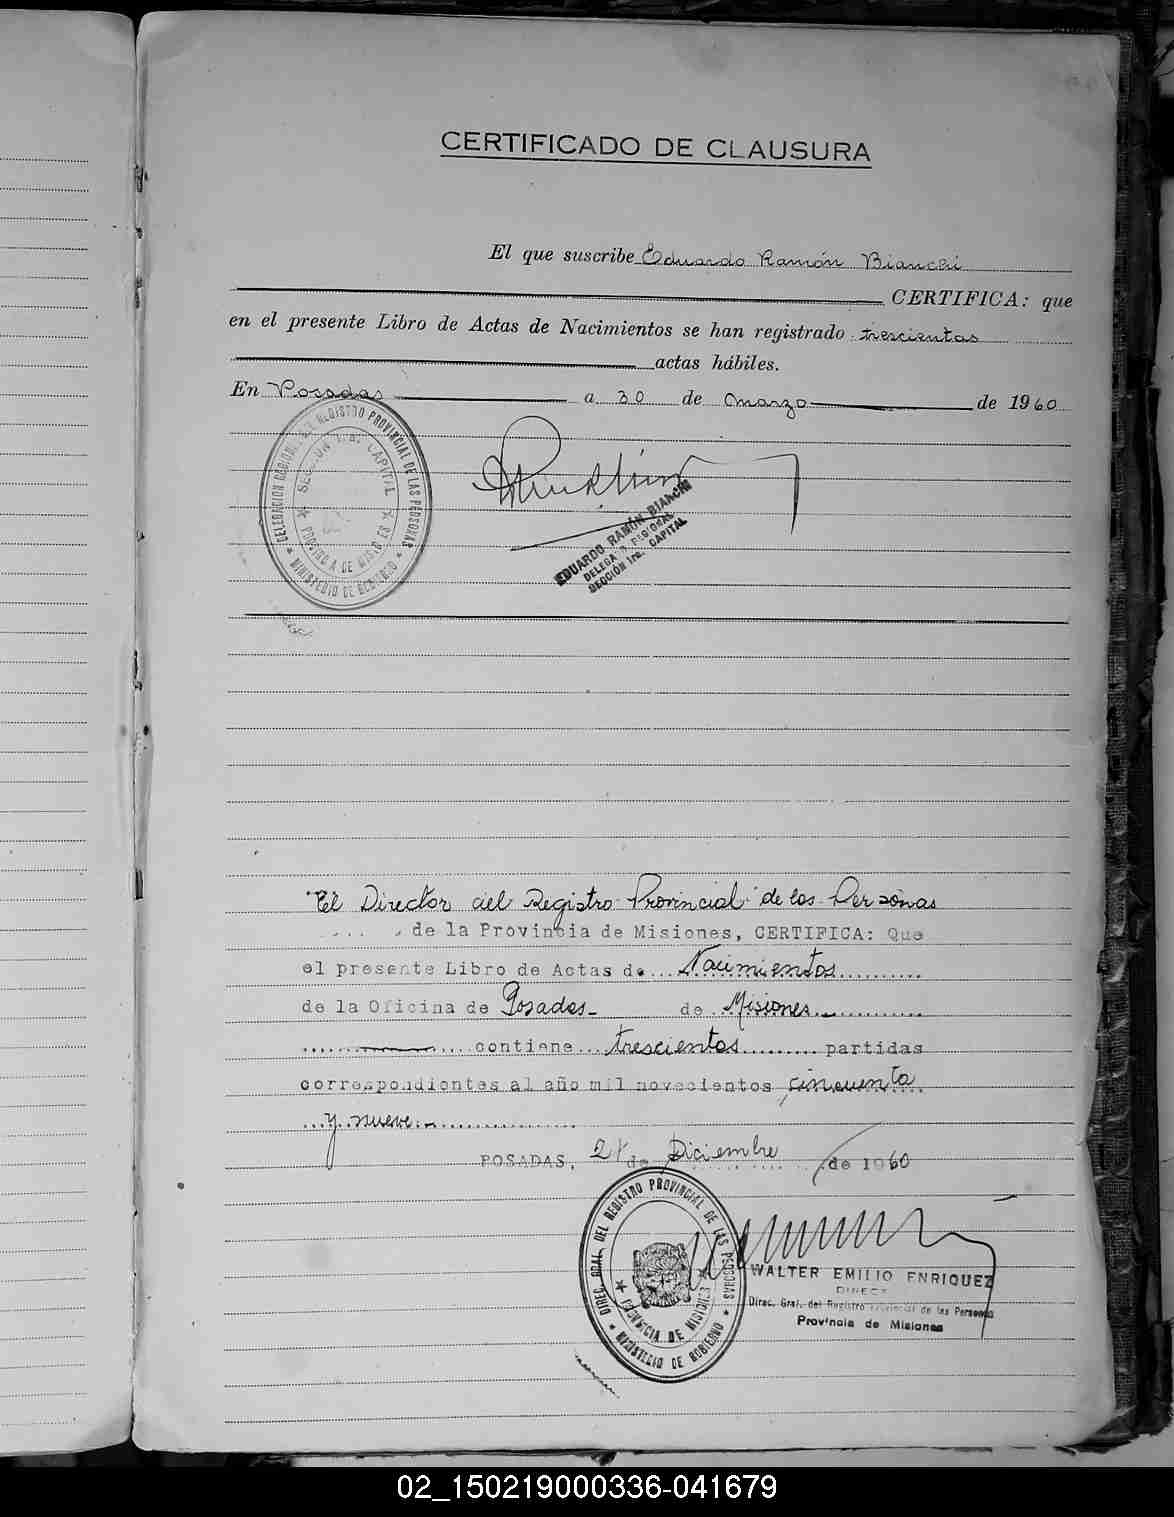 CERTIFICADO DE CLAUSURA
El que suscribe Eduardo Ramón Bianchi
CERTIFICA: que
en el presente Libro de Actas de Nacimientos se han registrado trescientas
actas hábiles.
En Posadas a 30 de marzo de 1960
DELEGACION REGIONAL DEL REGISTRO PROVINCIAL DE LAS PERSONAS
SECCION 1.a. CAPITAL
PROVINCIA DE MISIONES
MINISTERIO DE GOBIERNO
EDUARDO RAMÓN BIANCHI
DELEGADO REGIONAL
SECCIÓN 1ra. CAPITAL
El Director del Registro Provincial de las Personas
de la Provincia de Misiones, CERTIFICA: Que
el presente Libro de Actas de Nacimientos
de la Oficina de Posadas de Misiones
contiene trescientos partidas
correspondientes al año mil novecientos cincuenta
y nueve
POSADAS, de Diciembre de 1960
DIREC. GRAL. DEL REGISTRO PROVINCIAL DE LAS PERSONAS
PROVINCIA DE MISIONES
MINISTERIO DE GOBIERNO
WALTER EMILIO ENRIQUEZ
DIRECT
Direc. Gral. del Registro Provincial de las Personas
Provincia de Misiones
02_150219000336-041679